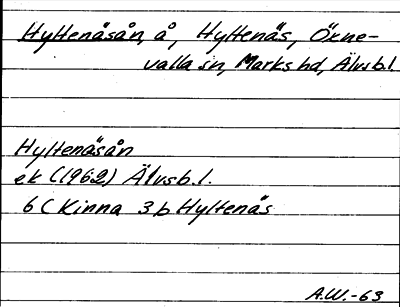 Hyltenäsån, å, Hyltenäs, Öxne-
valla sn, Marks hd, Älvsb.l.
Hyltenäsån
ek (1962) Älvsb.l.
6C Kinna 3b Hyltenäs
A.W.-63